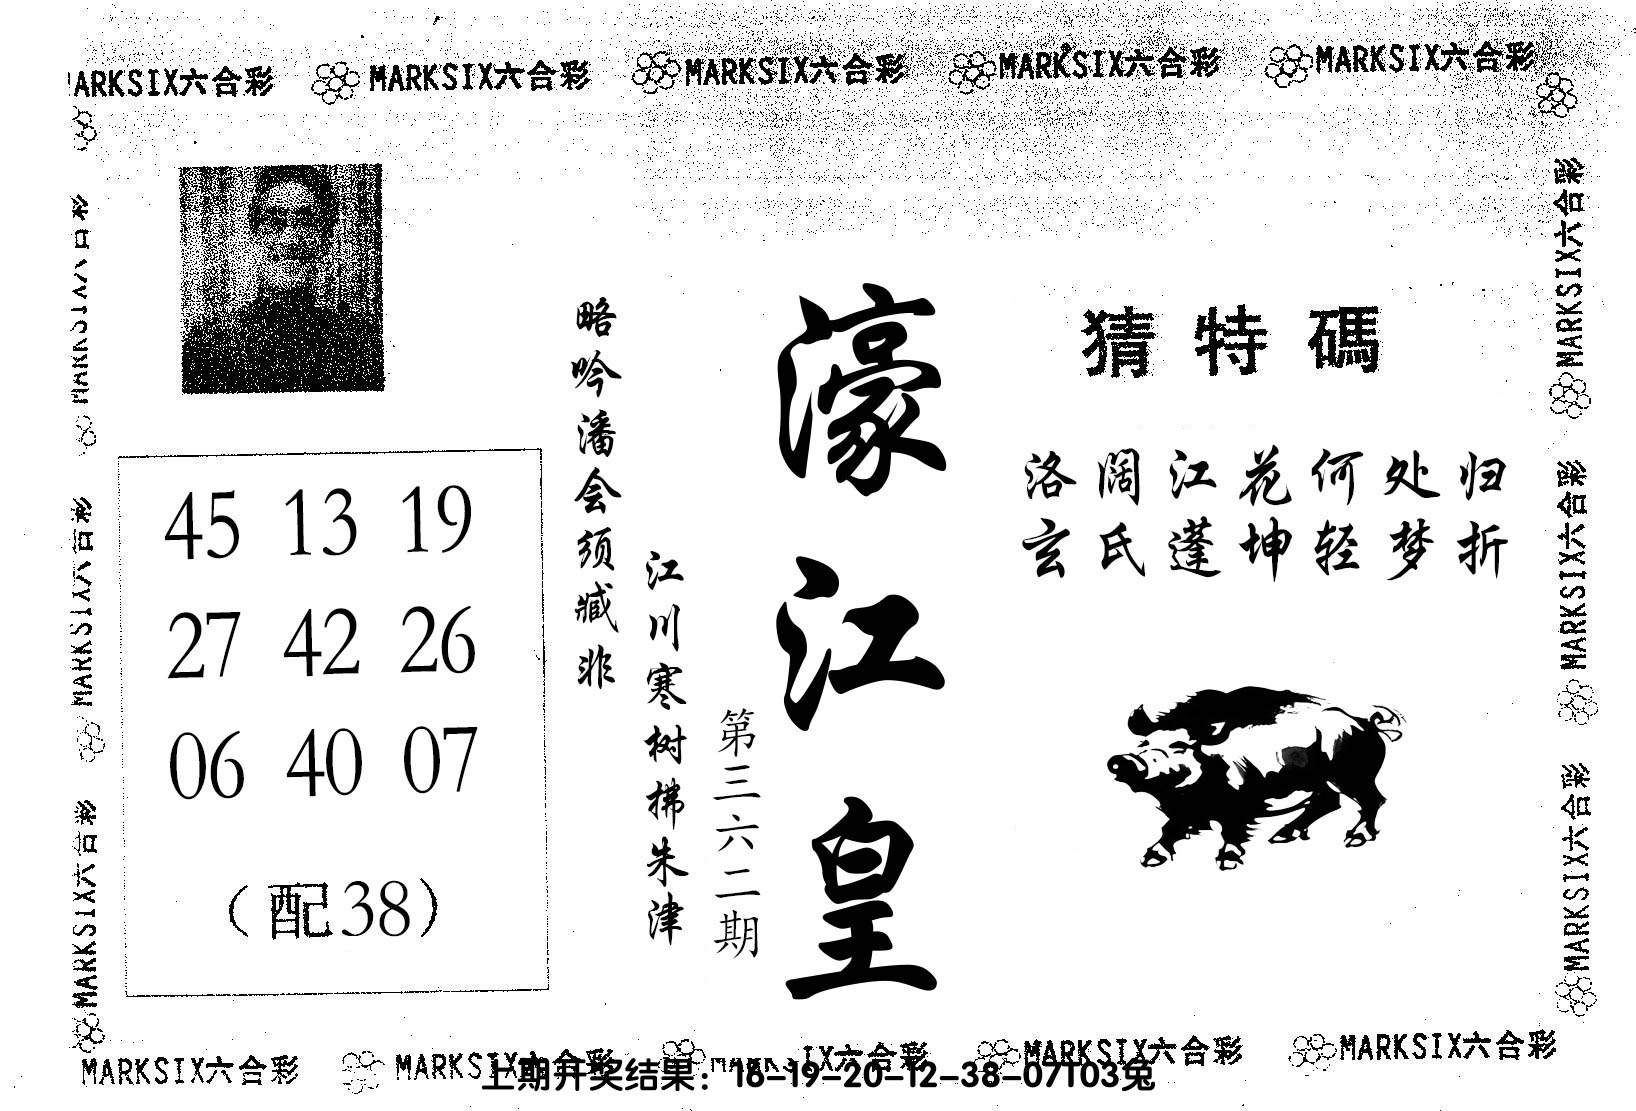 MARKSIX六合彩 MARKSIX六合彩 MARKSIX六合彩 MARKSIX六合彩 MARKSIX六合彩
MARKSIX六合彩 MARKSIX六合彩 MARKSIX六合彩
濠江皇
第三六二期
江川寒树拂朱津
略吟潘会须臧非
猜特碼
洛阔江花何处归
玄氏蓬坤轻梦折
45 13 19
27 42 26
06 40 07
(配38)
MARKSIX六合彩 MARKSIX六合彩 MARKSIX六合彩
MARKSIX六合彩 MARKSIX六合彩 MARKSIX六合彩 MARKSIX六合彩 MARKSIX六合彩
上期开奖结果：18-19-20-12-38-07T03兔